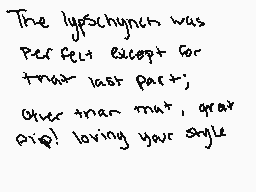 The lypschynch was
perfect except for
that last part;
other than that, great
pip! loving your style